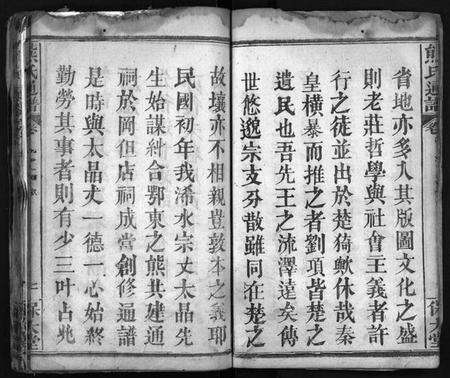 熊氏通譜
省地亦多入其版圖文化之盛
則老莊哲學與社會王義者許
行之徒並出於楚猗歟休哉秦
皇橫暴而推之者劉項皆楚之
遺民也吾先王之流澤遠矣傳
世悠邈宗支分散雖同在楚之
故壤亦不相親豈敦本之義耶
民國初年我浠水宗丈太晶先
生始謀糾合鄂東之熊共建通
祠於岡但店祠成嘗創修通譜
是時與太晶丈一德一心始終
勤勞其事者則有少三叶占兆
熊氏通譜